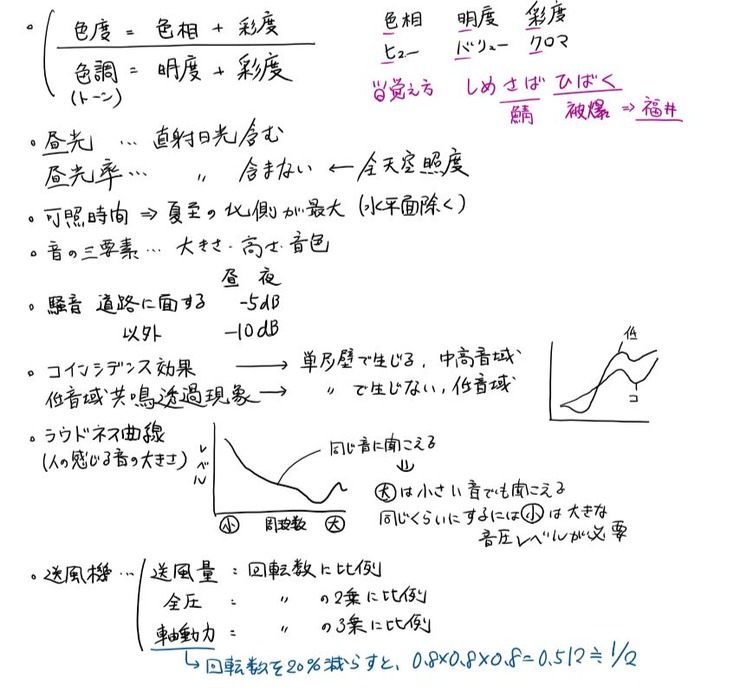 ・色度 = 色相 + 彩度
色調 = 明度 + 彩度
(トーン)
色相 明度 彩度
ヒュー バリュー クロマ
覚え方 しめさば ひばく
鯖 被爆 ⇒ 福井
・昼光 … 直射日光含む
昼光率 … 〃 含まない ← 全天空照度
・可照時間 ⇒ 夏至の北側が最大 (水平面除く)
・音の三要素 … 大きさ・高さ・音色
昼 夜
・騒音 道路に面する -5dB
以外 -10dB
・コインシデンス効果 → 単層壁で生じる, 中高音域
低音域共鳴透過現象 → 〃 で生じない, 低音域
低
コ
・ラウドネス曲線
(人の感じる音の大きさ)
レベル
同じ音に聞こえる
⇓
小 周波数 大
大は小さい音でも聞こえる
同じくらいにするには小は大きな
音圧レベルが必要
・送風機 … 送風量 : 回転数に比例
全圧 : 〃 の2乗に比例
軸動力 : 〃 の3乗に比例
↳ 回転数を20%減らすと、0.8×0.8×0.8=0.512≒1/2